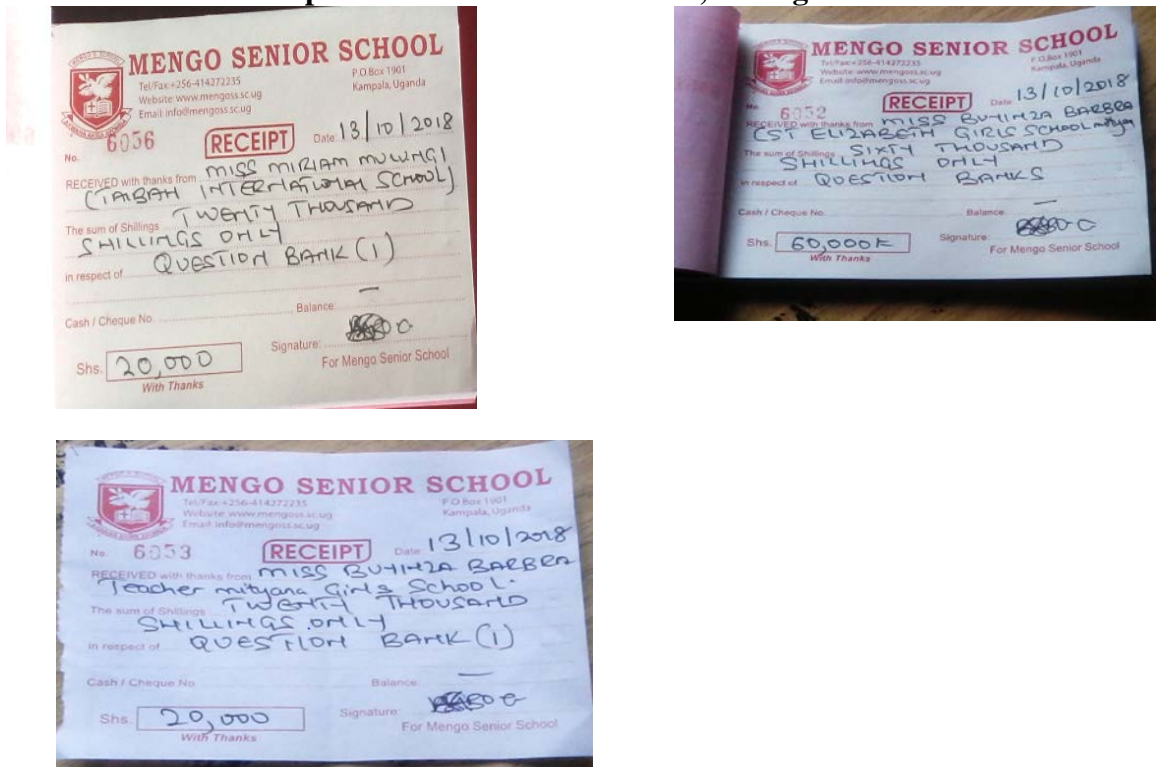 MENGO SENIOR SCHOOL
Tel/Fax:+256-414272235
Website: www.mengoss.sc.ug
Email: info@mengoss.sc.ug
P.O.Box 1901
Kampala, Uganda
No. 6056
RECEIPT
Date 13/10/2018
RECEIVED with thanks from MISS MIRIAM MULUNGI
(TAIBAH INTERNATIONAL SCHOOL)
The sum of Shillings TWENTY THOUSAND
SHILLINGS ONLY
in respect of QUESTION BANK (1)
Cash / Cheque No. Balance: —
Shs. 20,000
Signature:
With Thanks
For Mengo Senior School
MENGO SENIOR SCHOOL
Tel/Fax:+256-414272235
Website: www.mengoss.sc.ug
Email: info@mengoss.sc.ug
P.O.Box 1901
Kampala, Uganda
No. 6052
RECEIPT
Date 13/10/2018
RECEIVED with thanks from MISS BUYINZA BARBRA
(ST ELIZABETH GIRLS SCHOOL
The sum of Shillings SIXTY THOUSAND
SHILLINGS ONLY
in respect of QUESTION BANKS
Cash / Cheque No. Balance: —
Shs. 60,000=
Signature:
With Thanks
For Mengo Senior School
MENGO SENIOR SCHOOL
Tel/Fax:+256-414272235
Website: www.mengoss.sc.ug
Email: info@mengoss.sc.ug
P.O.Box 1901
Kampala, Uganda
No. 6053
RECEIPT
Date 13/10/2018
RECEIVED with thanks from MISS BUYINZA BARBRA
Teacher mityana Girls School.
The sum of Shillings TWENTY THOUSAND
SHILLINGS ONLY
in respect of QUESTION BANK (1)
Cash / Cheque No. Balance: —
Shs. 20,000
Signature:
With Thanks
For Mengo Senior School